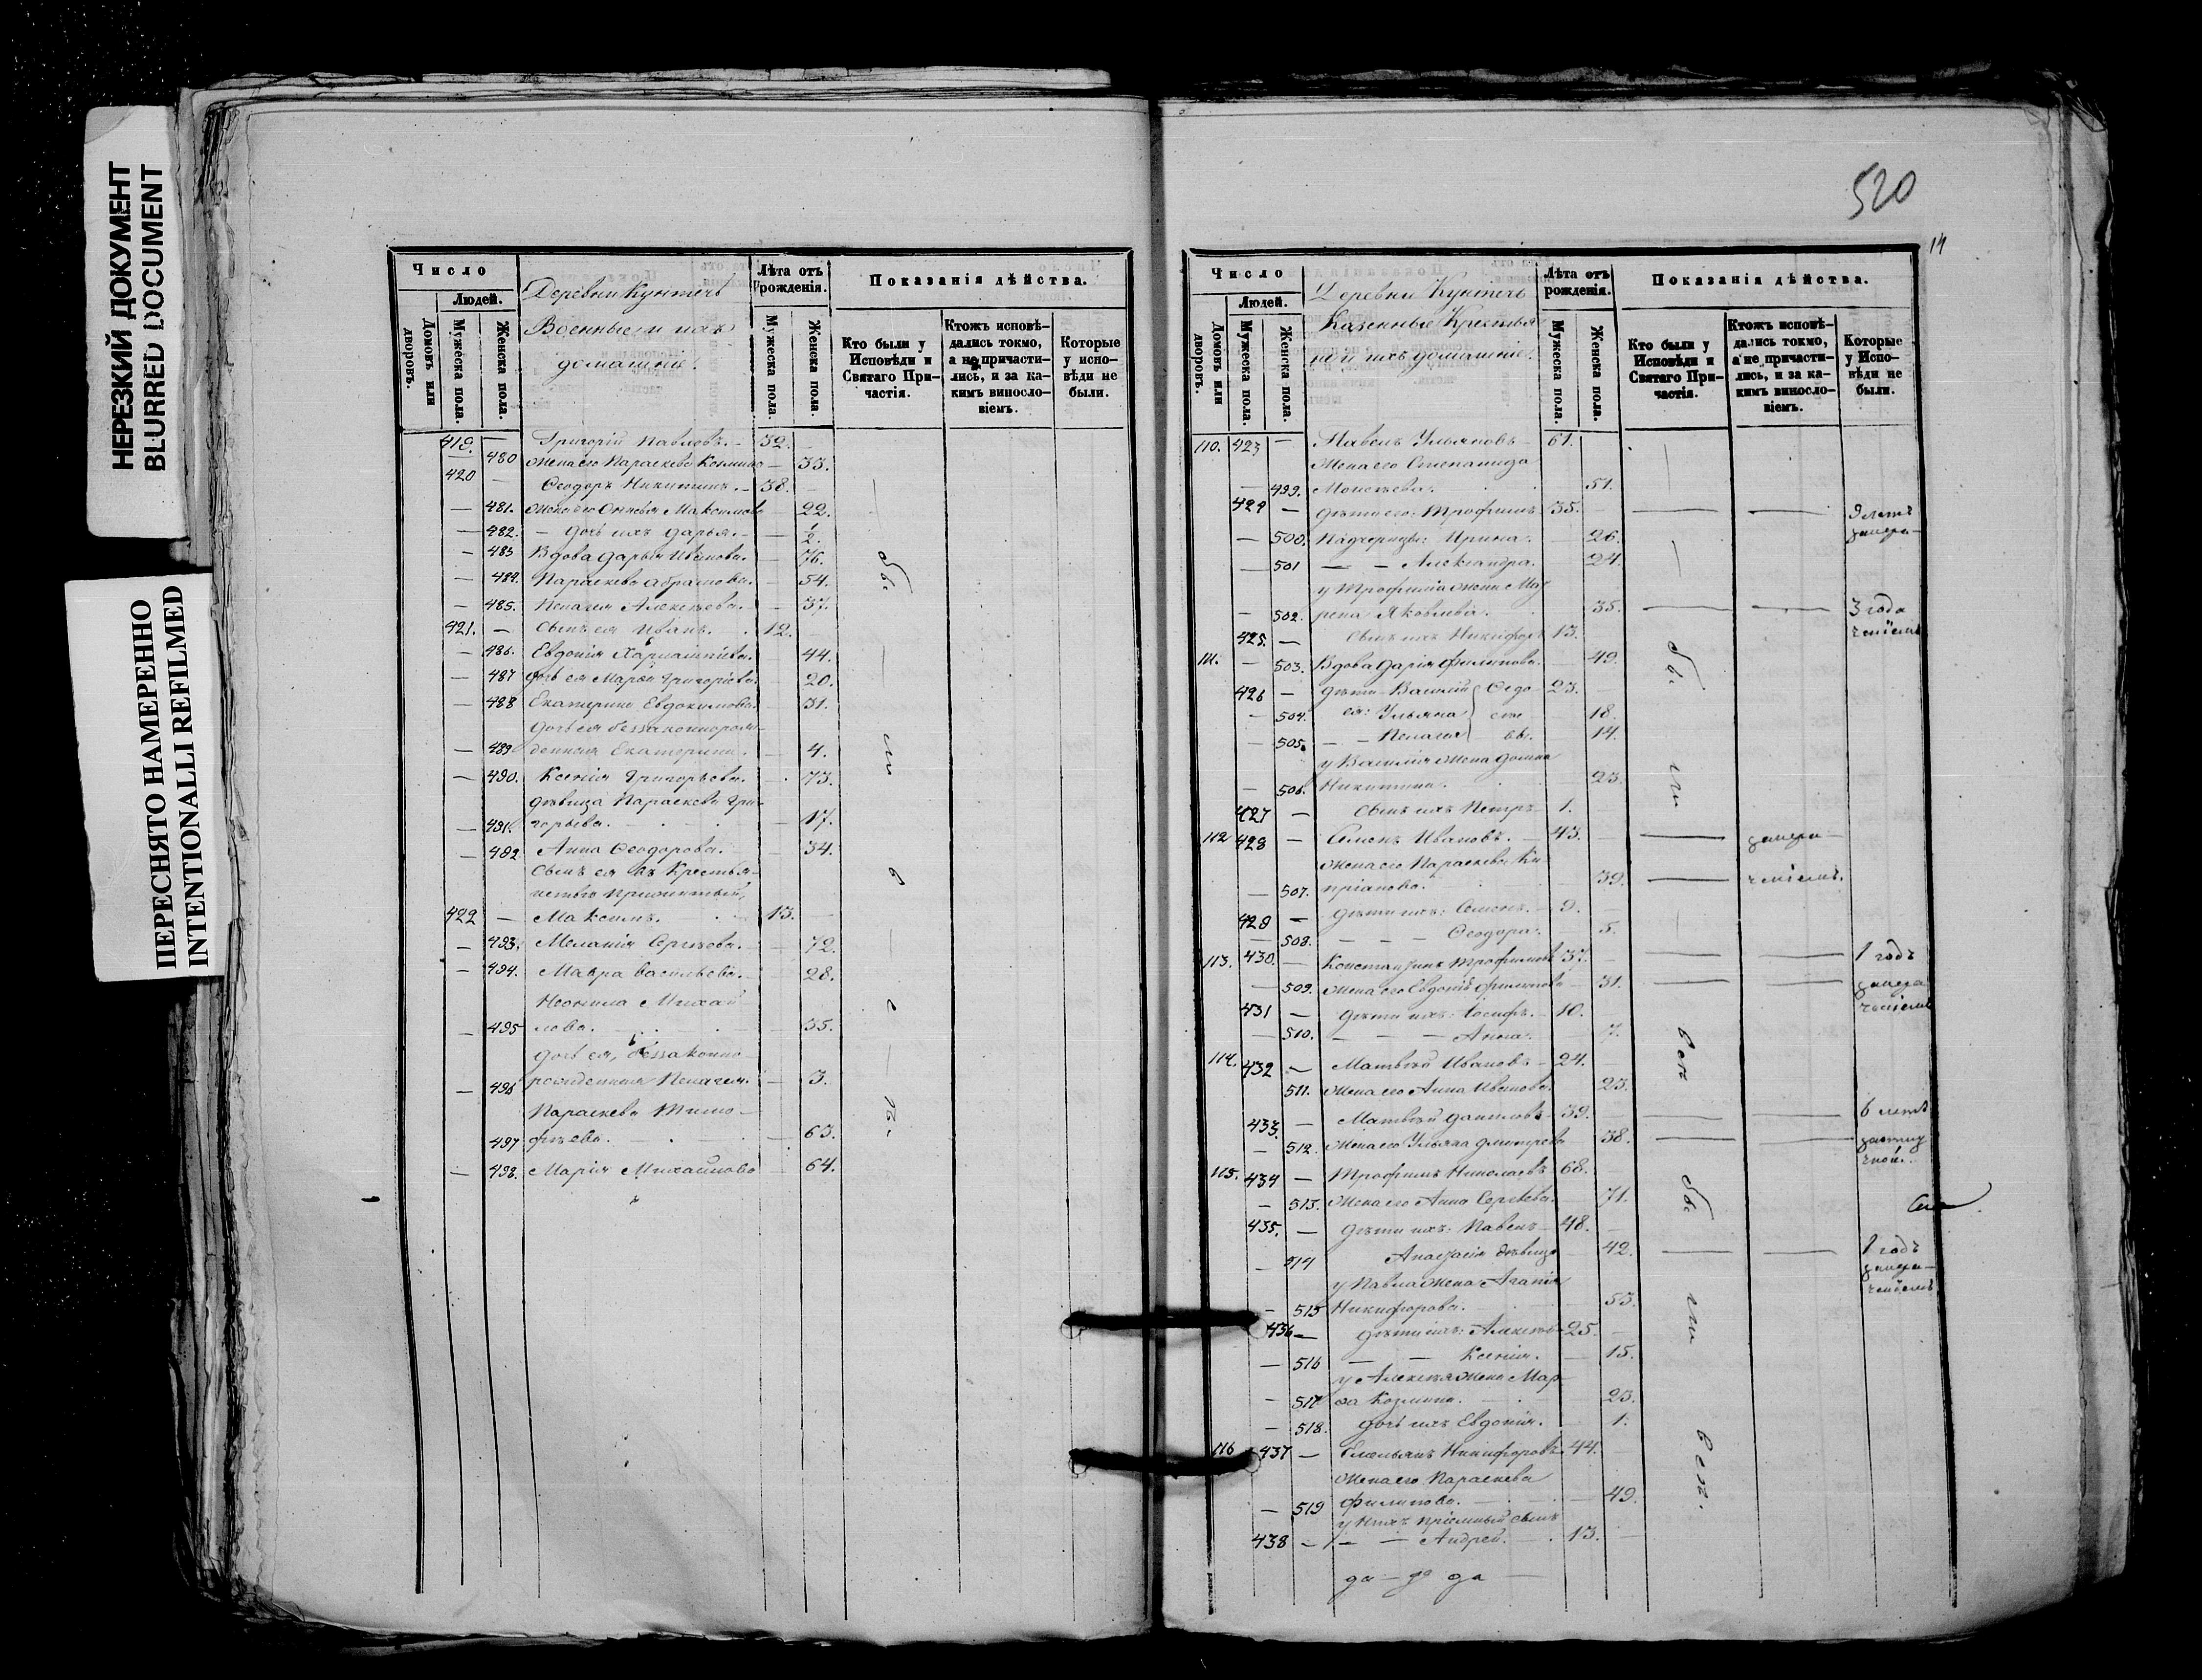 НЕРЕЗКИЙ ДОКУМЕНТ
BLURRED DOCUMENT
ПЕРЕСНЯТО НАМЕРЕННО
INTENTIONALLI REFILMED
Число
Людей.
Домовъ или дворовъ.
Мужеска пола.
Женска пола.
Деревни Кунтечь
Военные и ихъ
домашніе.
Лѣта отъ рожденія.
Мужеска пола.
Женска пола.
Показанія дѣйства.
Кто были у Исповѣди и Святаго Причастія.
Ктожъ исповѣдались токмо, а не причастились, и за какимъ винословіемъ.
Которые у исповѣди не были.
419. — Григорій Павловъ. — 39.
— 480 Жена его Параскева Козмина — 33.
420 — Ѳеодоръ Никитинъ. — 38.
— 481. Жена его Максимова 22.
— 482. — дочь ихъ Дарья. — 1/2.
— 483 Вдова Дарья Иванова. 76.
— 484. Параскева Абрамова. — 54.
— 485. Пелагея Алексѣева. — 37.
421. — Сынъ ея Иванъ. 12.
— 486. Евдокія 44.
— 487 дочь ея Марья Григорьева. 20.
— 488 Екатерина Евдокимова. — 31.
дочь ея беззаконнорож-
— 489 денная Екатерина. — 4.
— 490. Ксенія Григорьева. 73.
дѣвица Параскева Гри-
— 491. горьева. — 17.
— 492 Анна Ѳеодорова. 34.
Сынъ ея въ Крестьян-
ство
422 — Максимъ. 13. —
— 493. Меланія Сергѣева. — 72.
— 494. Мавра Васильева. — 28.
Неонила Михай-
— 495 лова. 35.
дочь ея, беззаконно-
— 496 рожденная Пелагея. — 3.
Параскева Тимо-
497 фѣева. — 63.
— 498. Марія Михайлова 64.
бы
ли
в
с
ѣ.
520
14
Число
Людей.
Домовъ или дворовъ.
Мужеска пола.
Женска пола.
Деревни Кунтечь
Казенные Крестья
не и ихъ домашніе.
Лѣта отъ рожденія.
Мужеска пола.
Женска пола.
Показанія дѣйства.
Кто были у Исповѣди и Святаго Причастія.
Ктожъ исповѣдались токмо, а не причастились, и за какимъ винословіемъ.
Которые у Исповѣди не были.
110. 423 — Павелъ Ульяновъ — 61.
Жена его Степанида
— 499. Моисѣева. 51.
424 — дѣти его: Трофимъ 35. — 9 летъ
— 500. Падчерицы: Ирина. 26. запера-
— 501 — — Александра. 24.
у Трофима жена Мат
— 502. рена Яковлева. 35. — 3 года
425. — Сынъ ихъ Никифоръ 13. ченіемъ
111. — 503. Вдова Дарія Филипова. 49.
426 — дѣти Василій Ѳедо- 23.
— 504. ея: Ульяна сѣе 18.
— 505. — — Пелагея вы. 14.
у Василія жена Домна
— 506. Никитина. 23.
427 — Сынъ ихъ Петръ 1.
112 428 — Семенъ Ивановъ. — 43. — запера-
Жена его Параскева Ки-
— 507. пріанова. 39. — ченіемъ.
429 — дѣти ихъ: Семенъ. — 9.
— 508. — — — Ѳеодора. 5.
113. 430. — Константинъ Трофимовъ 37. — 1 годъ
— 509. Жена его Евдокія Филипова 31. — запера
431 — дѣти ихъ: Іосифъ. — 10. ченіемъ
— 510. — — — Анна. 7.
114. 432 — Матвѣй Ивановъ — 24.
511. Жена его Анна Иванова. 23.
433. — Матвѣй Даниловъ — 39. — 6 летъ
— 512. Жена его Ульяна Дмитріева 38. —
115. 434 — Трофимъ Николаевъ 68.
— 513. Жена его Анна Сергѣева. 71.
435. — дѣти ихъ: Павелъ — 48.
— 514 Анастасія дѣвица 42. — 1 годъ
у Павла жена Агапія запера-
— 515 Никифорова. 53. ченіемъ
436 — дѣти ихъ: Алексѣй 25.
— 516 — — Ксенія. 15.
у Алексѣя жена Мар-
— 517 ѳа Козмина. 23.
— 518. дочь ихъ Евдокія. 1.
116 437 — Емельянъ Никифоровъ 44.
Жена его Параскева
— 519 Филипова. 49.
у нихъ пріемный сынъ
438 — — — Андрей. 13.
бы
ли
всѣ
бы
ли
всѣ.